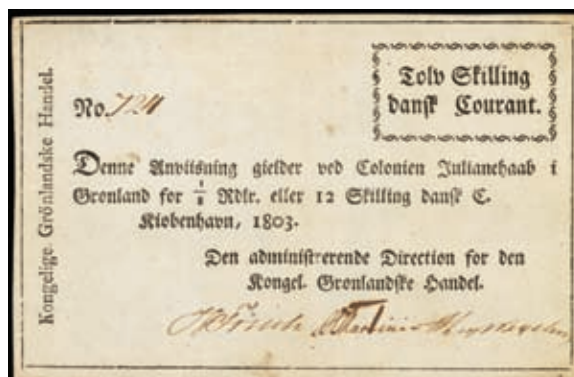 Kongelige Grönlandske Handel.
No.
Tolv Skilling
dansk Courant.
Denne Anviisning gielder ved Colonien Julianehaab i
Grønland for 1/8 Rdlr. eller 12 Skilling dansk C.
Kiøbenhavn, 1803.
Den administrerende Direction for den
Kongel. Grønlandske Handel.